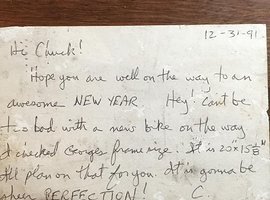 12-31-91
Hi Chuck!
Hope you are well on the way to an
awesome NEW YEAR Hey! Cant be
too bad with a new bike on the way
I checked Georges frame size. It is 20" x 15
I'll plan on that for you. It is gonna be
sheer PERFECTION! C.